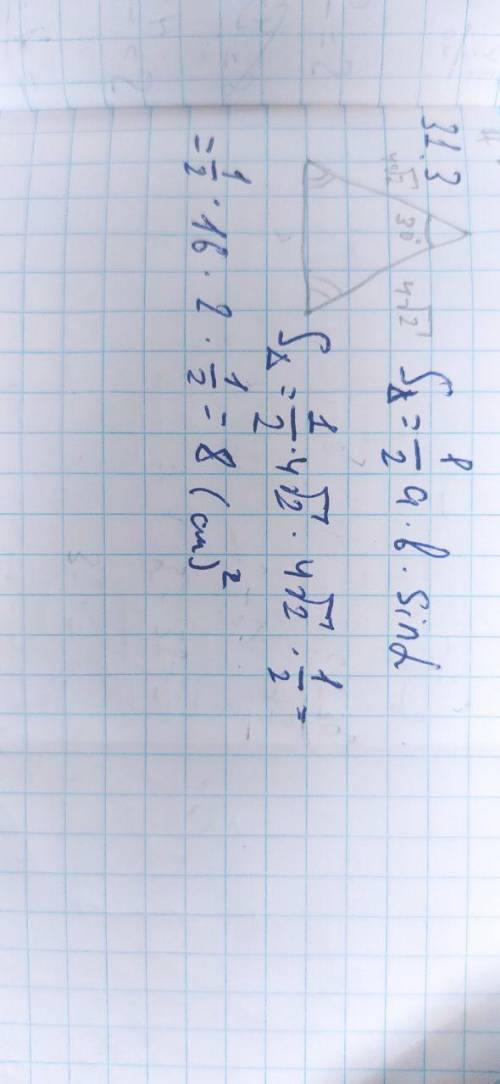 31.3
4√2 30° 4√2
S△ = 1/2 a · b · sin α
S△ = 1/2 · 4√2 · 4√2 · 1/2 =
= 1/2 · 16 · 2 · 1/2 = 8 (см)²